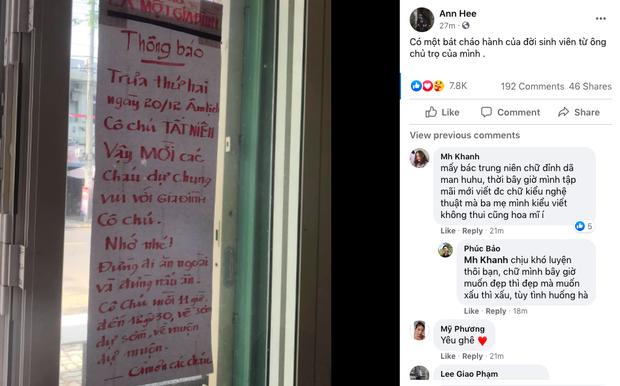 LÀ MỘT GIA ĐÌNH
Thông báo
Trưa thứ hai
ngày 20/12 Âm lịch
Cô chú TẤT NIÊN
Vậy MỜI các
Cháu dự chung
VUI VỚI GIA ĐÌNH
Cô chú.
Nhớ nhé!
Đừng đi ăn ngoài
và đừng nấu ăn.
Cô Chú mời 11 giờ
đến 18g30, về sớm
dự sớm, về muộn
dự muộn.
Cảm ơn các cháu
Ann Hee
27m
Có một bát cháo hành của đời sinh viên từ ông
chủ trọ của mình .
7.8K
192 Comments 46 Shares
Like
Comment
Share
View previous comments
Mh Khanh
mấy bác trung niên chữ đỉnh dã
man huhu, thời bây giờ mình tập
mãi mới viết đc chữ kiểu nghệ
thuật mà ba mẹ mình kiểu viết
không thui cũng hoa mĩ í
5
Like · Reply · 21m
Phúc Bảo
Mh Khanh chịu khó luyện
thôi bạn, chữ mình bây giờ
muốn đẹp thì đẹp mà muốn
xấu thì xấu, tùy tình huống hà
Like · Reply · 18m
Mỹ Phương
Yêu ghê
Like · Reply · 21m
Lee Giao Phạm